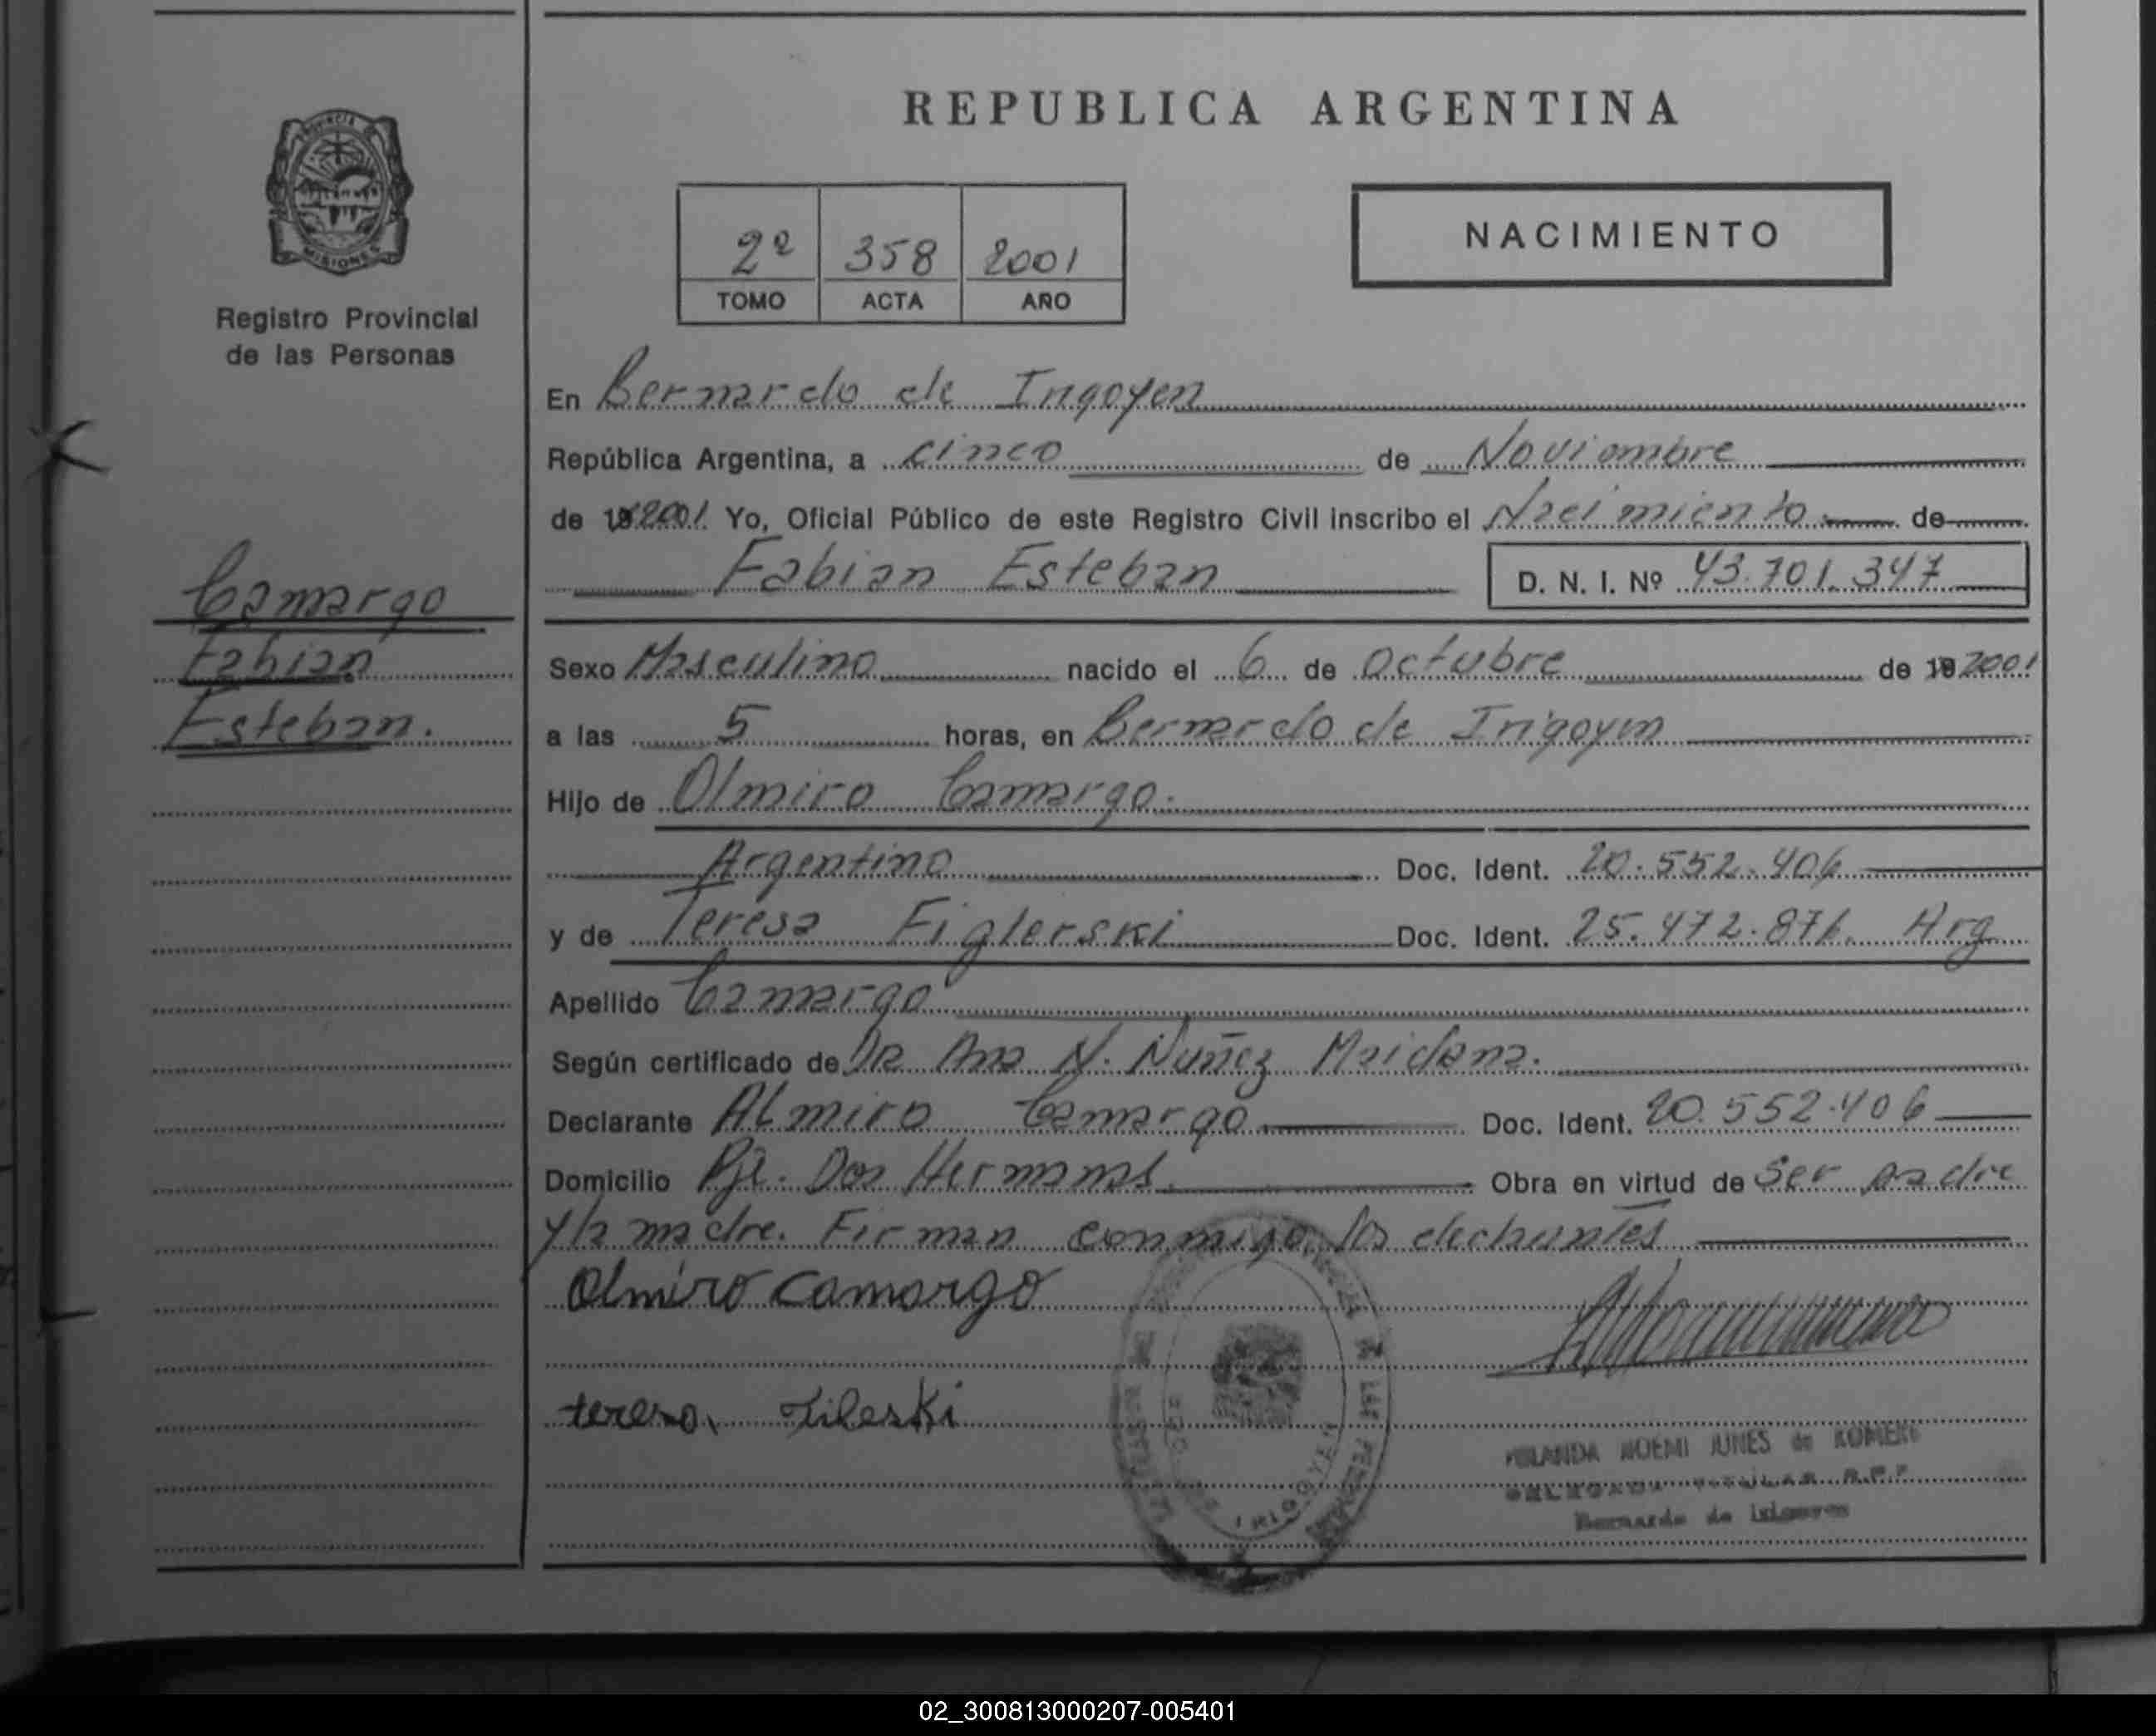 REPUBLICA ARGENTINA
PROVINCIA DE
MISIONES
Registro Provincial
de las Personas
NACIMIENTO
2º 358 2001
TOMO ACTA AÑO
En Bernardo de Irigoyen
República Argentina, a cinco de Noviembre
de 19 2001 Yo, Oficial Público de este Registro Civil inscribo el Nacimiento de
Fabian Esteban D. N. I. Nº 43.701.347
Camargo
Fabian
Esteban.
Sexo Masculino nacido el 6 de Octubre de 19 2001
a las 5 horas, en Bernardo de Irigoyen
Hijo de Olmiro Camargo.
Argentino Doc. Ident. 20.552.406
y de Teresa Figlerski Doc. Ident. 25.472.876. Arg
Apellido Camargo
Según certificado de Dra Ana N. Nuñez Maidana.
Declarante Almiro Camargo Doc. Ident. 20.552.406
Domicilio Pje. Dos Hermanas. Obra en virtud de Ser padre
y la madre. Firman conmigo los declarantes
Olmiro Camargo
teresa
YOLANDA NOEMI JUNES de ROMERO
Bernardo de Irigoyen
02_300813000207-005401